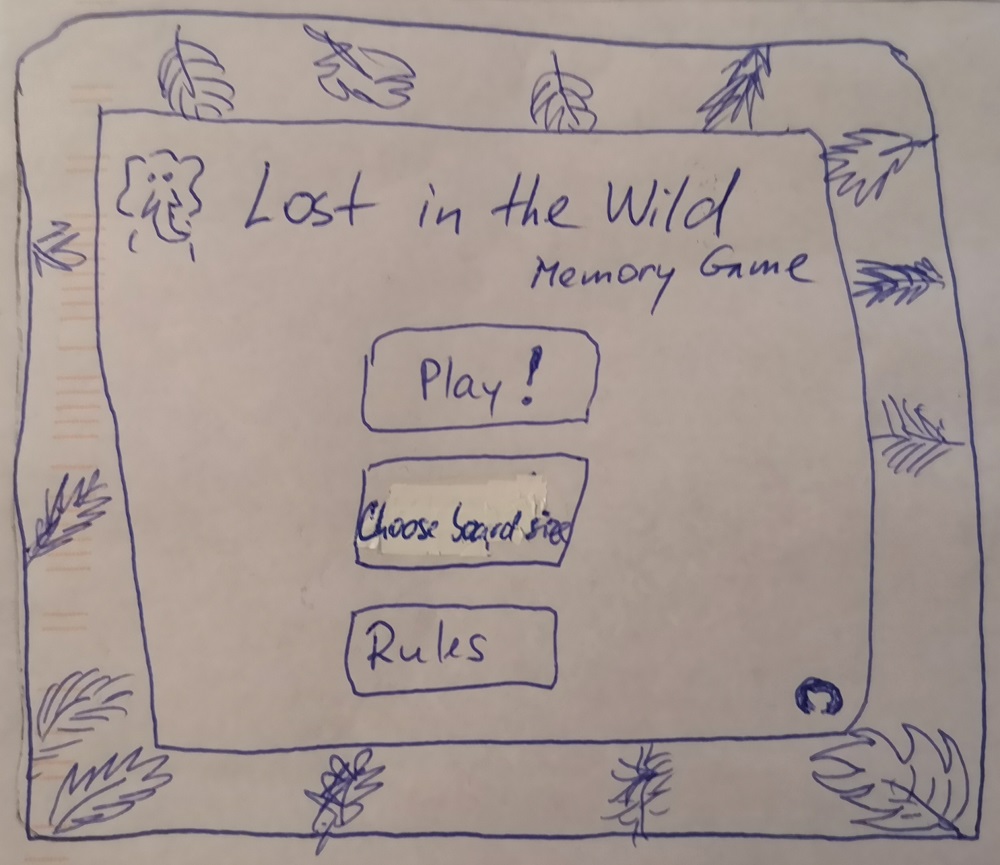 Lost in the Wild
Memory Game
Play!
Choose board size
Rules
C